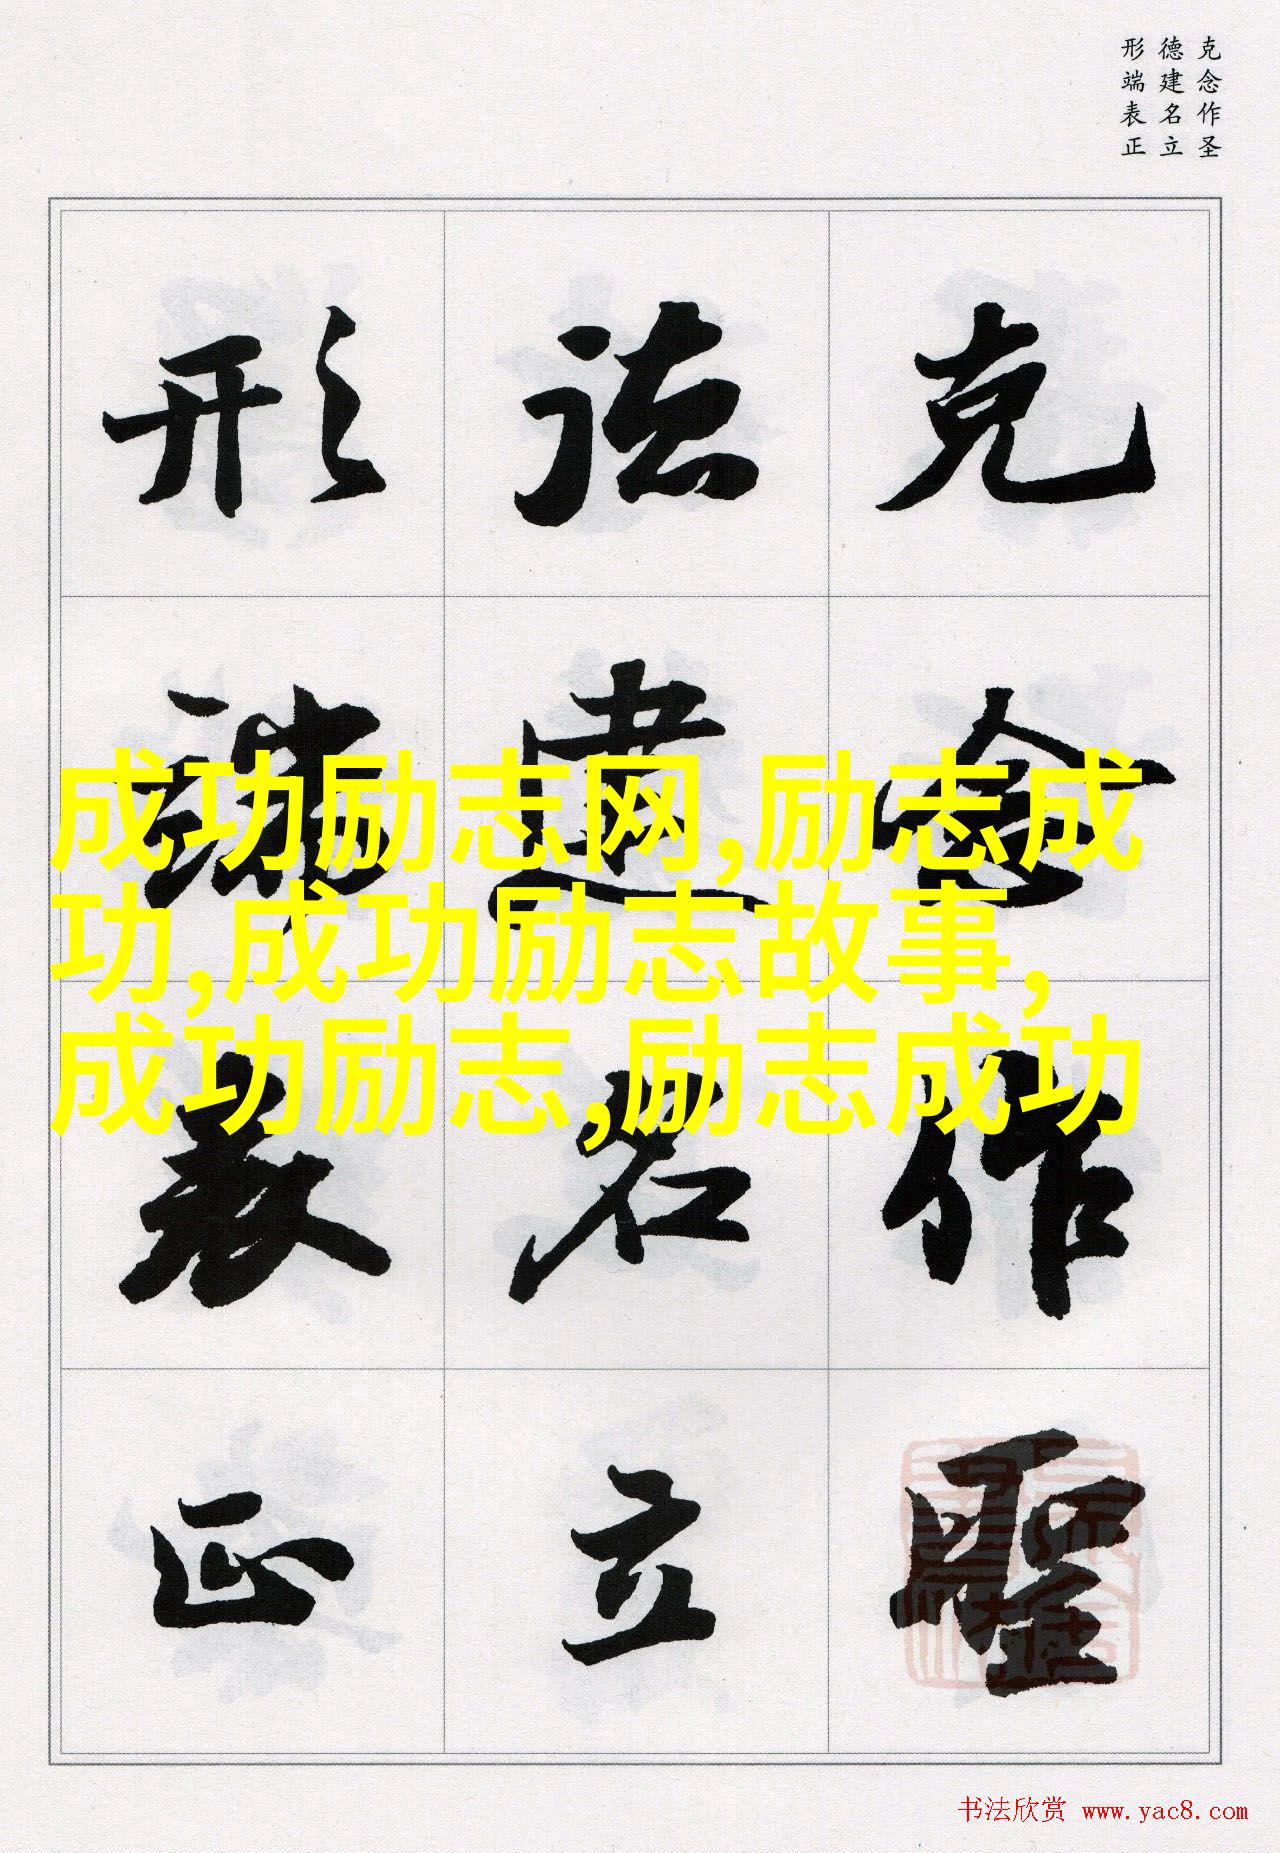 克念作圣
德建名立
形端表正
克念作聖
德建名立
形端表正
成功励志网,励志成
功,成功励志故事,
成功励志,励志成功
书法欣赏 www.yac8.com